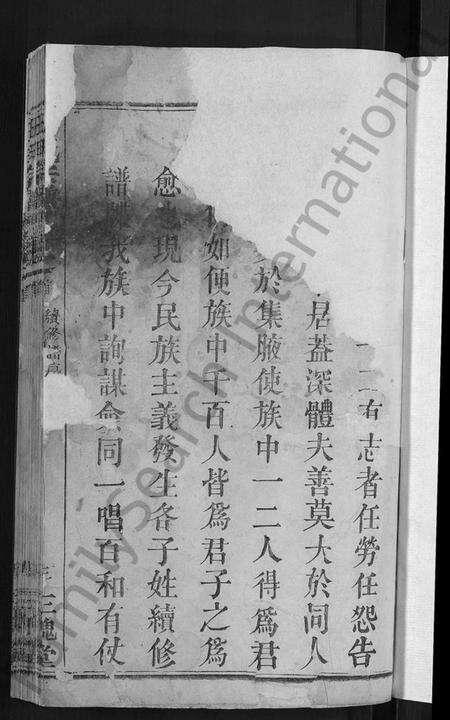 二有志者任勞任怨告
君蓋深體夫善莫大於同人
於集腋使族中一二人得爲君
如使族中千百人皆爲君子之爲
愈 現今民族主義發生各子姓續修
譜 我族中詢謀僉同一唱百和有仗
續修
三槐堂
FamilySearch International